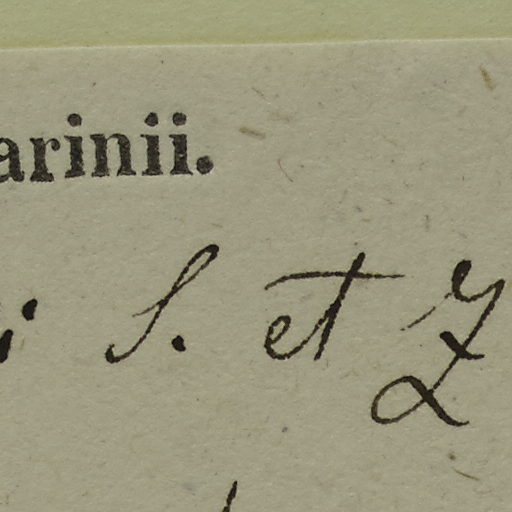 arinii.
i S. et Z